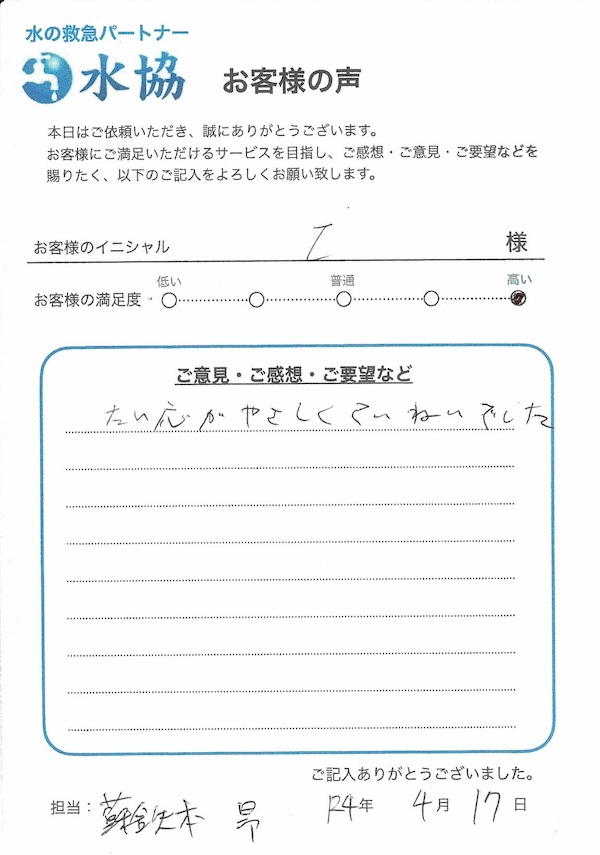 水の救急パートナー
水協 お客様の声
本日はご依頼いただき、誠にありがとうございます。
お客様にご満足いただけるサービスを目指し、ご感想・ご意見・ご要望などを
賜りたく、以下のご記入をよろしくお願い致します。
お客様のイニシャル I 様
低い 普通 高い
お客様の満足度
ご意見・ご感想・ご要望など
たい応がやさしくていねいでした
ご記入ありがとうございました。
担当: 本 昴 R4年 4月 17日